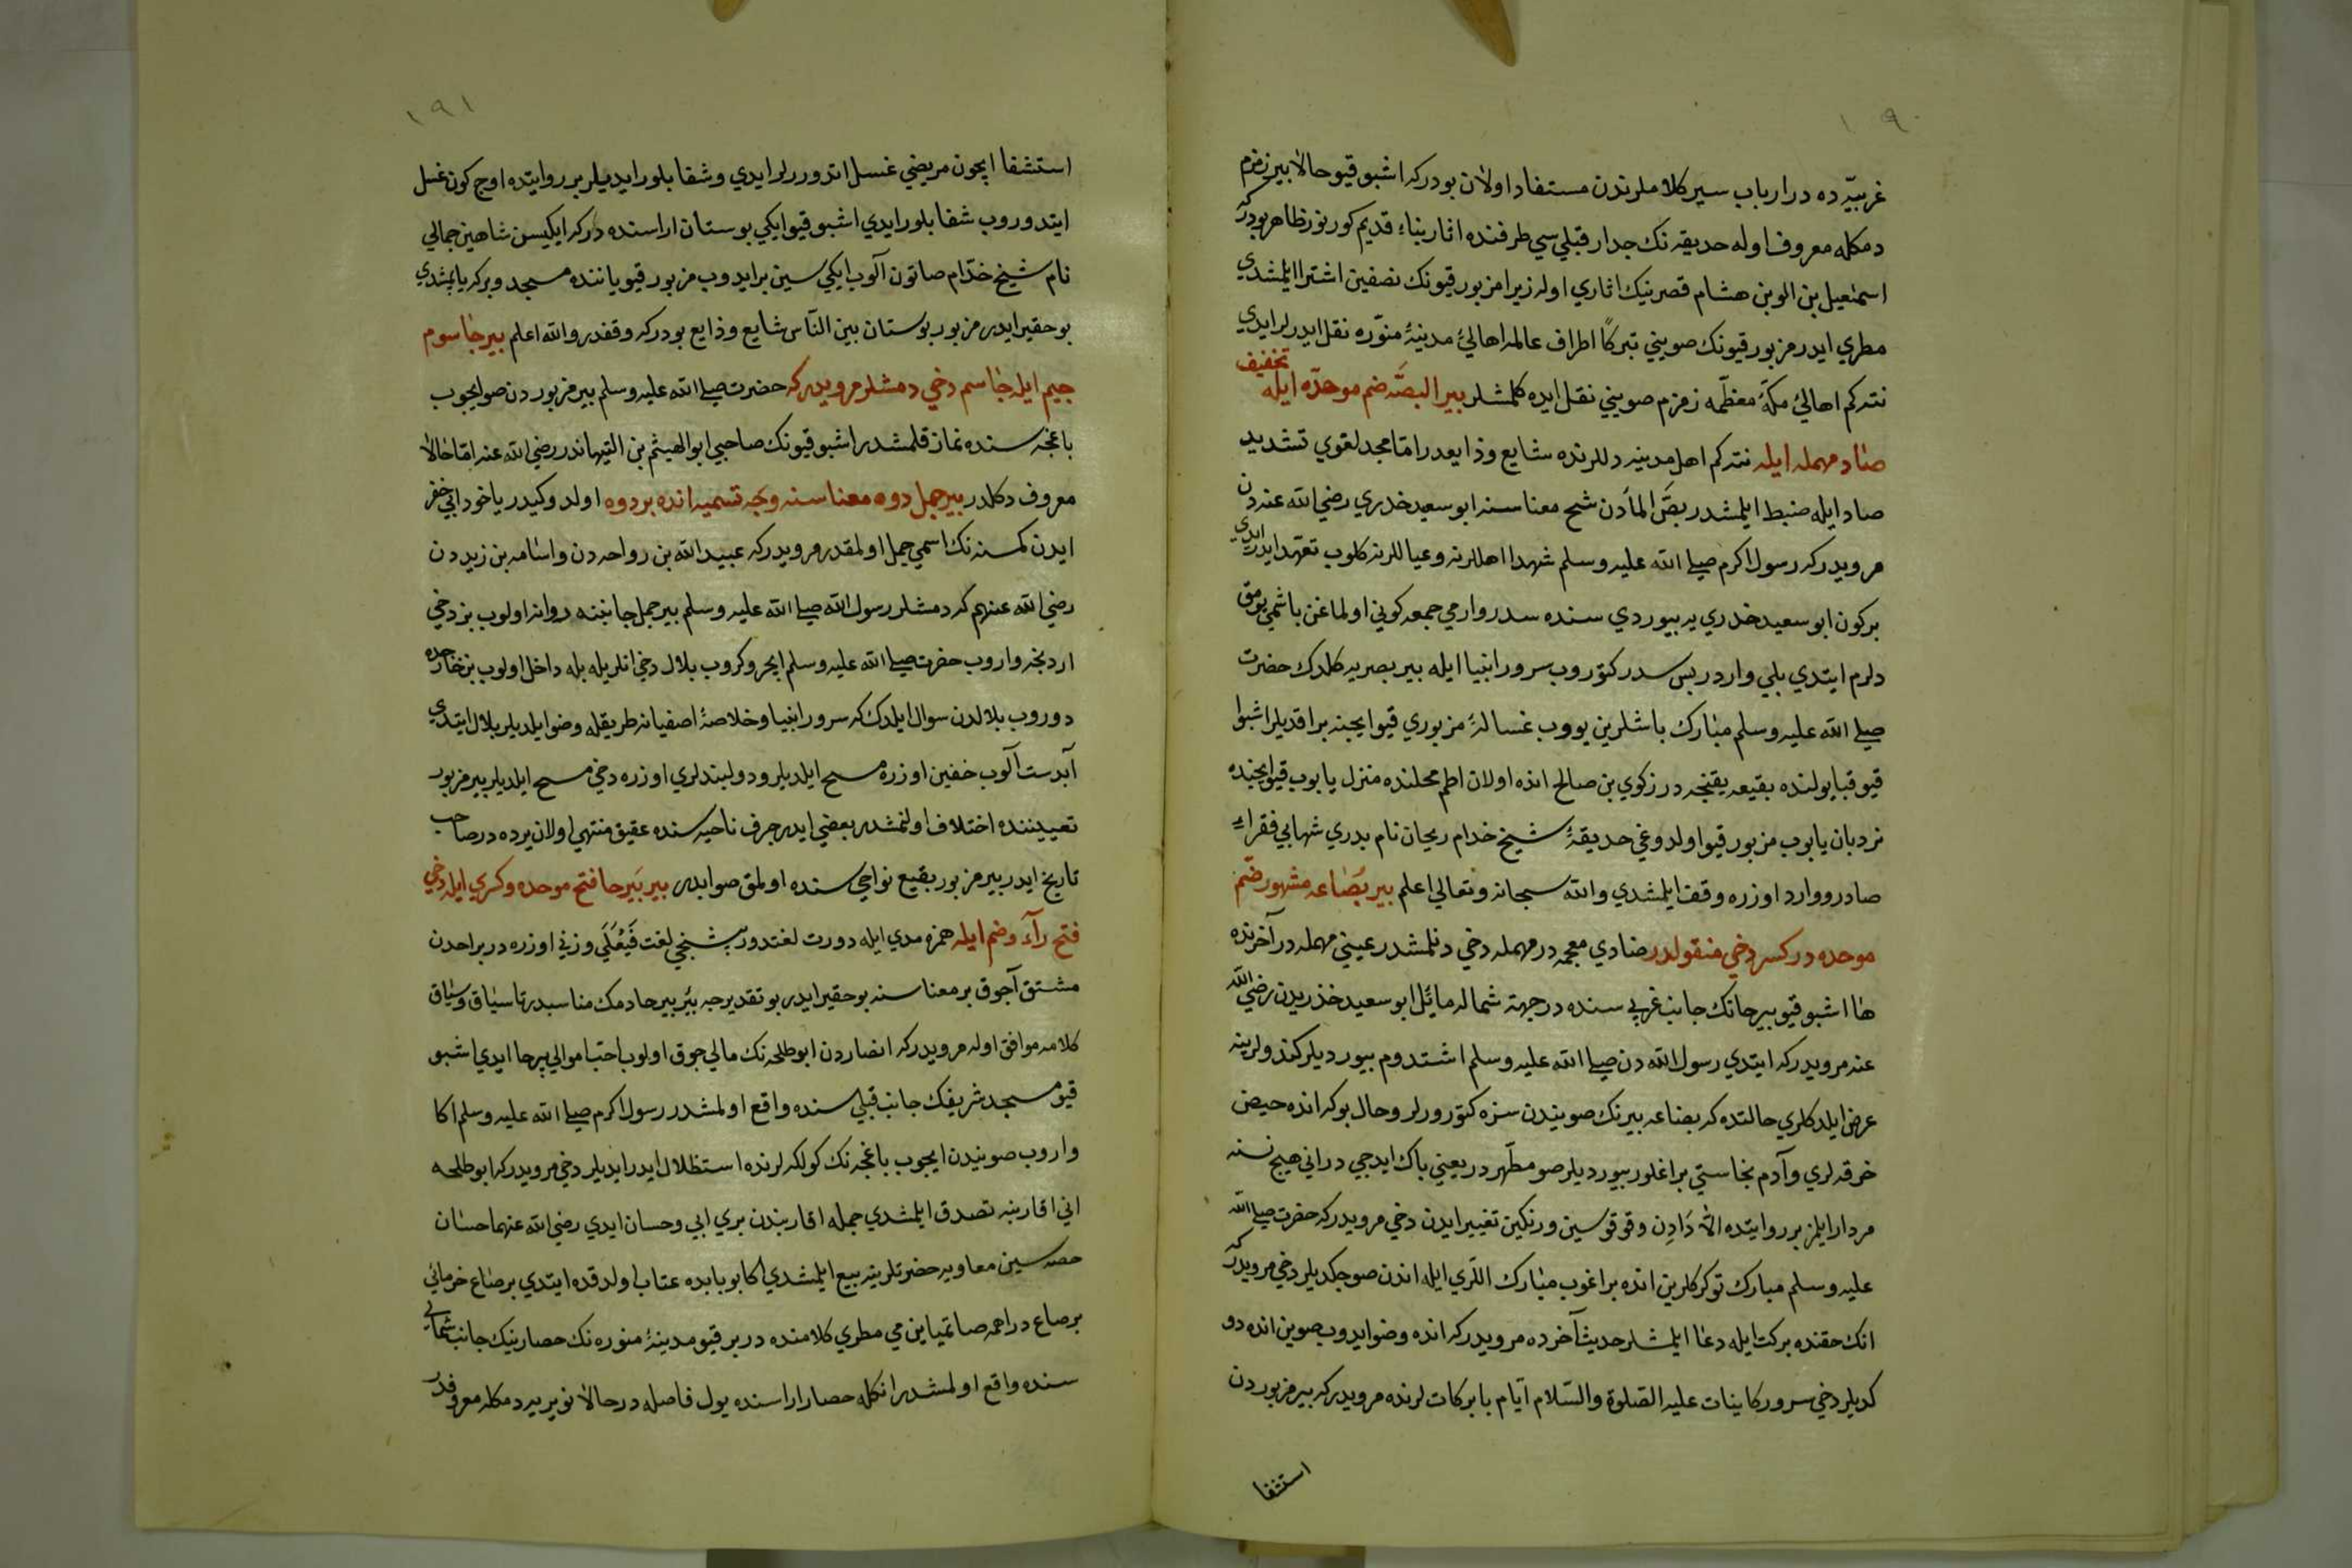 ١٩٠
غربيّه ده در ارباب سير كلاملرندن مستفاد اولان بودركه اشبو قيو حالا بير زمزم
دمكله معروف اوله حديقه نك جدار قبلي سي طرفنده اثار بناء قديم كورنور ظاهر بودركه
اسمعيل بن الوبن هشام قصرينك اثاري اوله زيرا مزبور قيونك نصفين اشترا ايلمشدي
مطري ايدر مزبور قيونك صويني تبركاً اطراف عالمه اهالئ مدينۀ منوّره نقل ايدرلر ايدي
نته كم اهالئ مكۀ معظّمه زمزم صويني نقل ايده كلمشلر بير البصّه ضم موحدّه ايله تخفيف
صاد مهمله ايله نته كم اهل مدينه دللرنده شايع وذايعدر امّا مجد لغوي تشديد
صاد ايله ضبط ايلمشدر بصّ المأدن شح معناسنه ابو سعيد خدري رضي الله عنه دن
مرويدركه رسول اكرم صلے الله عليه وسلم شهدا اهللرنه وعياللرنه كلوب تعهّد ايدر ايدي
بركون ابو سعيد خدري يه بيوردي سنده سدر وارمي جمعه كوني اولماغن باشمي يومق
دلرم ايتدي بلي واردر پس سدر كتوروب سرور انبيا ايله بير بصريه كلدك حضرت
صلے الله عليه وسلم مبارك باشلرين يووب غسالۀ مزبوري قيو ايچنه براقديلر اشبوا
قيو قبا يولنده بقيعه يقنجه در زكوي بن صالح انده اولان اطم محلنده منزل يابوب قيو ايچنده
نردبان يابوب مزبور قيو اولدوغي حديقۀ شيخ خدام ريحان نام بدري شهابي فقراء
صادر ووارد اوزره وقف ايلمشدي والله سبحانه وتعالي اعلم بير بُضاعه مشهور ضمّ
موحده در كسر دخي منقولدر ضادي معجمه در مهمله دخي دنلمشدر عيني مهمله در آخرنده
ها اشبو قيو بيرحانك جانب غربي سنده در جهة شماله مائل ابو سعيد خذريدن رضي الله
عنه مرويدركه ايتدي رسول الله دن صلے الله عليه وسلم اشتدوم بيورديلر كندولرينه
عرض ايلدكلري حالتده كه بضاعه بيرنك صويندن سزه كتورورلر وحال بوكه انده حيض
خرقه لري وآدم نجاستي براغلور بيورديلر صو مطهّر در يعني پاك ايدجي در اني هيچ نسنه
مردار ايلمز بر روايتده الّا دَادِن وقوقوسين ورنكين تغيير ايدن دخي مرويدركه حضرت صلے الله
عليه وسلم مبارك توكركلرين انده براغوب مبارك اللري ايله اندن صو چكديلر دخي مرويدركه
انك حقنده بركت ايله دعا ايلمشلر حديث آخرده مرويدركه انده وضو ايدوب صوين انده دو
كديلر دخي سرور كاينات عليه الصّلوة والسّلام ايّام بابركات لرنده مرويدركه بير مزبوردن
استشفا
١٩١
استشفا ايچون مريضي غسل اتدورر لر ايدي وشفا بلور ايديلر بر روايتده اوچ كون غسل
ايتدوروب شفا بلور ايدي اشبو قيو ايكي بوستان اراسنده دركه ايكيسن شاهين جمالي
نام شيخ خدّام صاتون آلوب ايكي سين بر ايدوب مزبور قيو ياننده مسجد وبركه ياپمشدي
بو حقير ايدر مزبور بوستان بين النّاس شايع وذايع بودركه وقفدر والله اعلم بير جاسوم
جيم ايله جاسم دخي دمشلر مرويدركه حضرت صلے الله عليه وسلم بير مزبوردن صو ايچوب
باغچه سنده نماز قلمشدر اشبو قيونك صاحبي ابو الهيثم بن التيهاندر رضي الله عنه امّا حالا
معروف دكلدر بير جمل دوه معناسنه وجه تسميه انده بر دوه اولدوكيدر ياخود اني حفر
ايدن كمسنه نك اسمي جمل اولمقدر مرويدركه عبيد الله بن رواحه دن واسامه بن زيددن
رضي الله عنهم كه دمشلر رسول الله صلے الله عليه وسلم بير جمل جانبنه روانه اولوب بز دخي
اردنجه واروب حضرت صلے الله عليه وسلم ايچرو كروب بلال دخي انلريله بله داخل اولوب بز خارجده
دوروب بلالدن سوال ايلدك كه سرور انبيا وخلاصۀ اصفيا نه طريقله وضو ايلديلر بلال ايتدي
آبدست آلوب خفين اوزره مسح ايلديلر ودولبندلري اوزره دخي مسح ايلديلر بير مزبور
تعييننده اختلاف اولنمشدر بعضي ايدر جرف ناحيه سنده عقيق منتهي اولان يرده در صاحب
تاريخ ايدر بير مزبور بقيع نواحي سنده اولمق صوابدر بير بَيرحا فتح موحده وكسري ايله دخي
فتح رآء وضم ايله همزه مدي ايله دورت لغتدور بشنجي لغت فَيْعَلَي وزني اوزره در براحدن
مشتق آچوق ير معناسنه بو حقير ايدر بو تقديرجه بئر بيرحا دمك مناسبدر تا سياق وسباق
كلامه موافق اوله مرويدركه انصاردن ابو طلحه نك مالي چوق اولوب احبّ اموالي بيرحا ايدي اشبو
قيو مسجد شريفك جانب قبلي سنده واقع اولمشدر رسول اكرم صلے الله عليه وسلم اكا
واروب صويندن ايچوب باغچه نك كولكه لرنده استظلال ايدر ايديلر دخي مرويدركه ابو طلحه
اني اقاربنه تصدق ايلمشدي جمله اقاربندن بري ابي وحسان ايدي رضي الله عنهما حسّان
حصه سين معاويه حضرتلرينه بيع ايلمشدي اكا بو بابده عتاب اولدقده ايتدي بر صاع خرمائي
بر صاع دراهمه صاتمياين مي مطري كلامنده در بير قيو مدينۀ منوره نك حصارينك جانب شمالي
سنده واقع اولمشدر انكله حصار اراسنده يول فاصله در حالا نويريه دمكله معروفدر